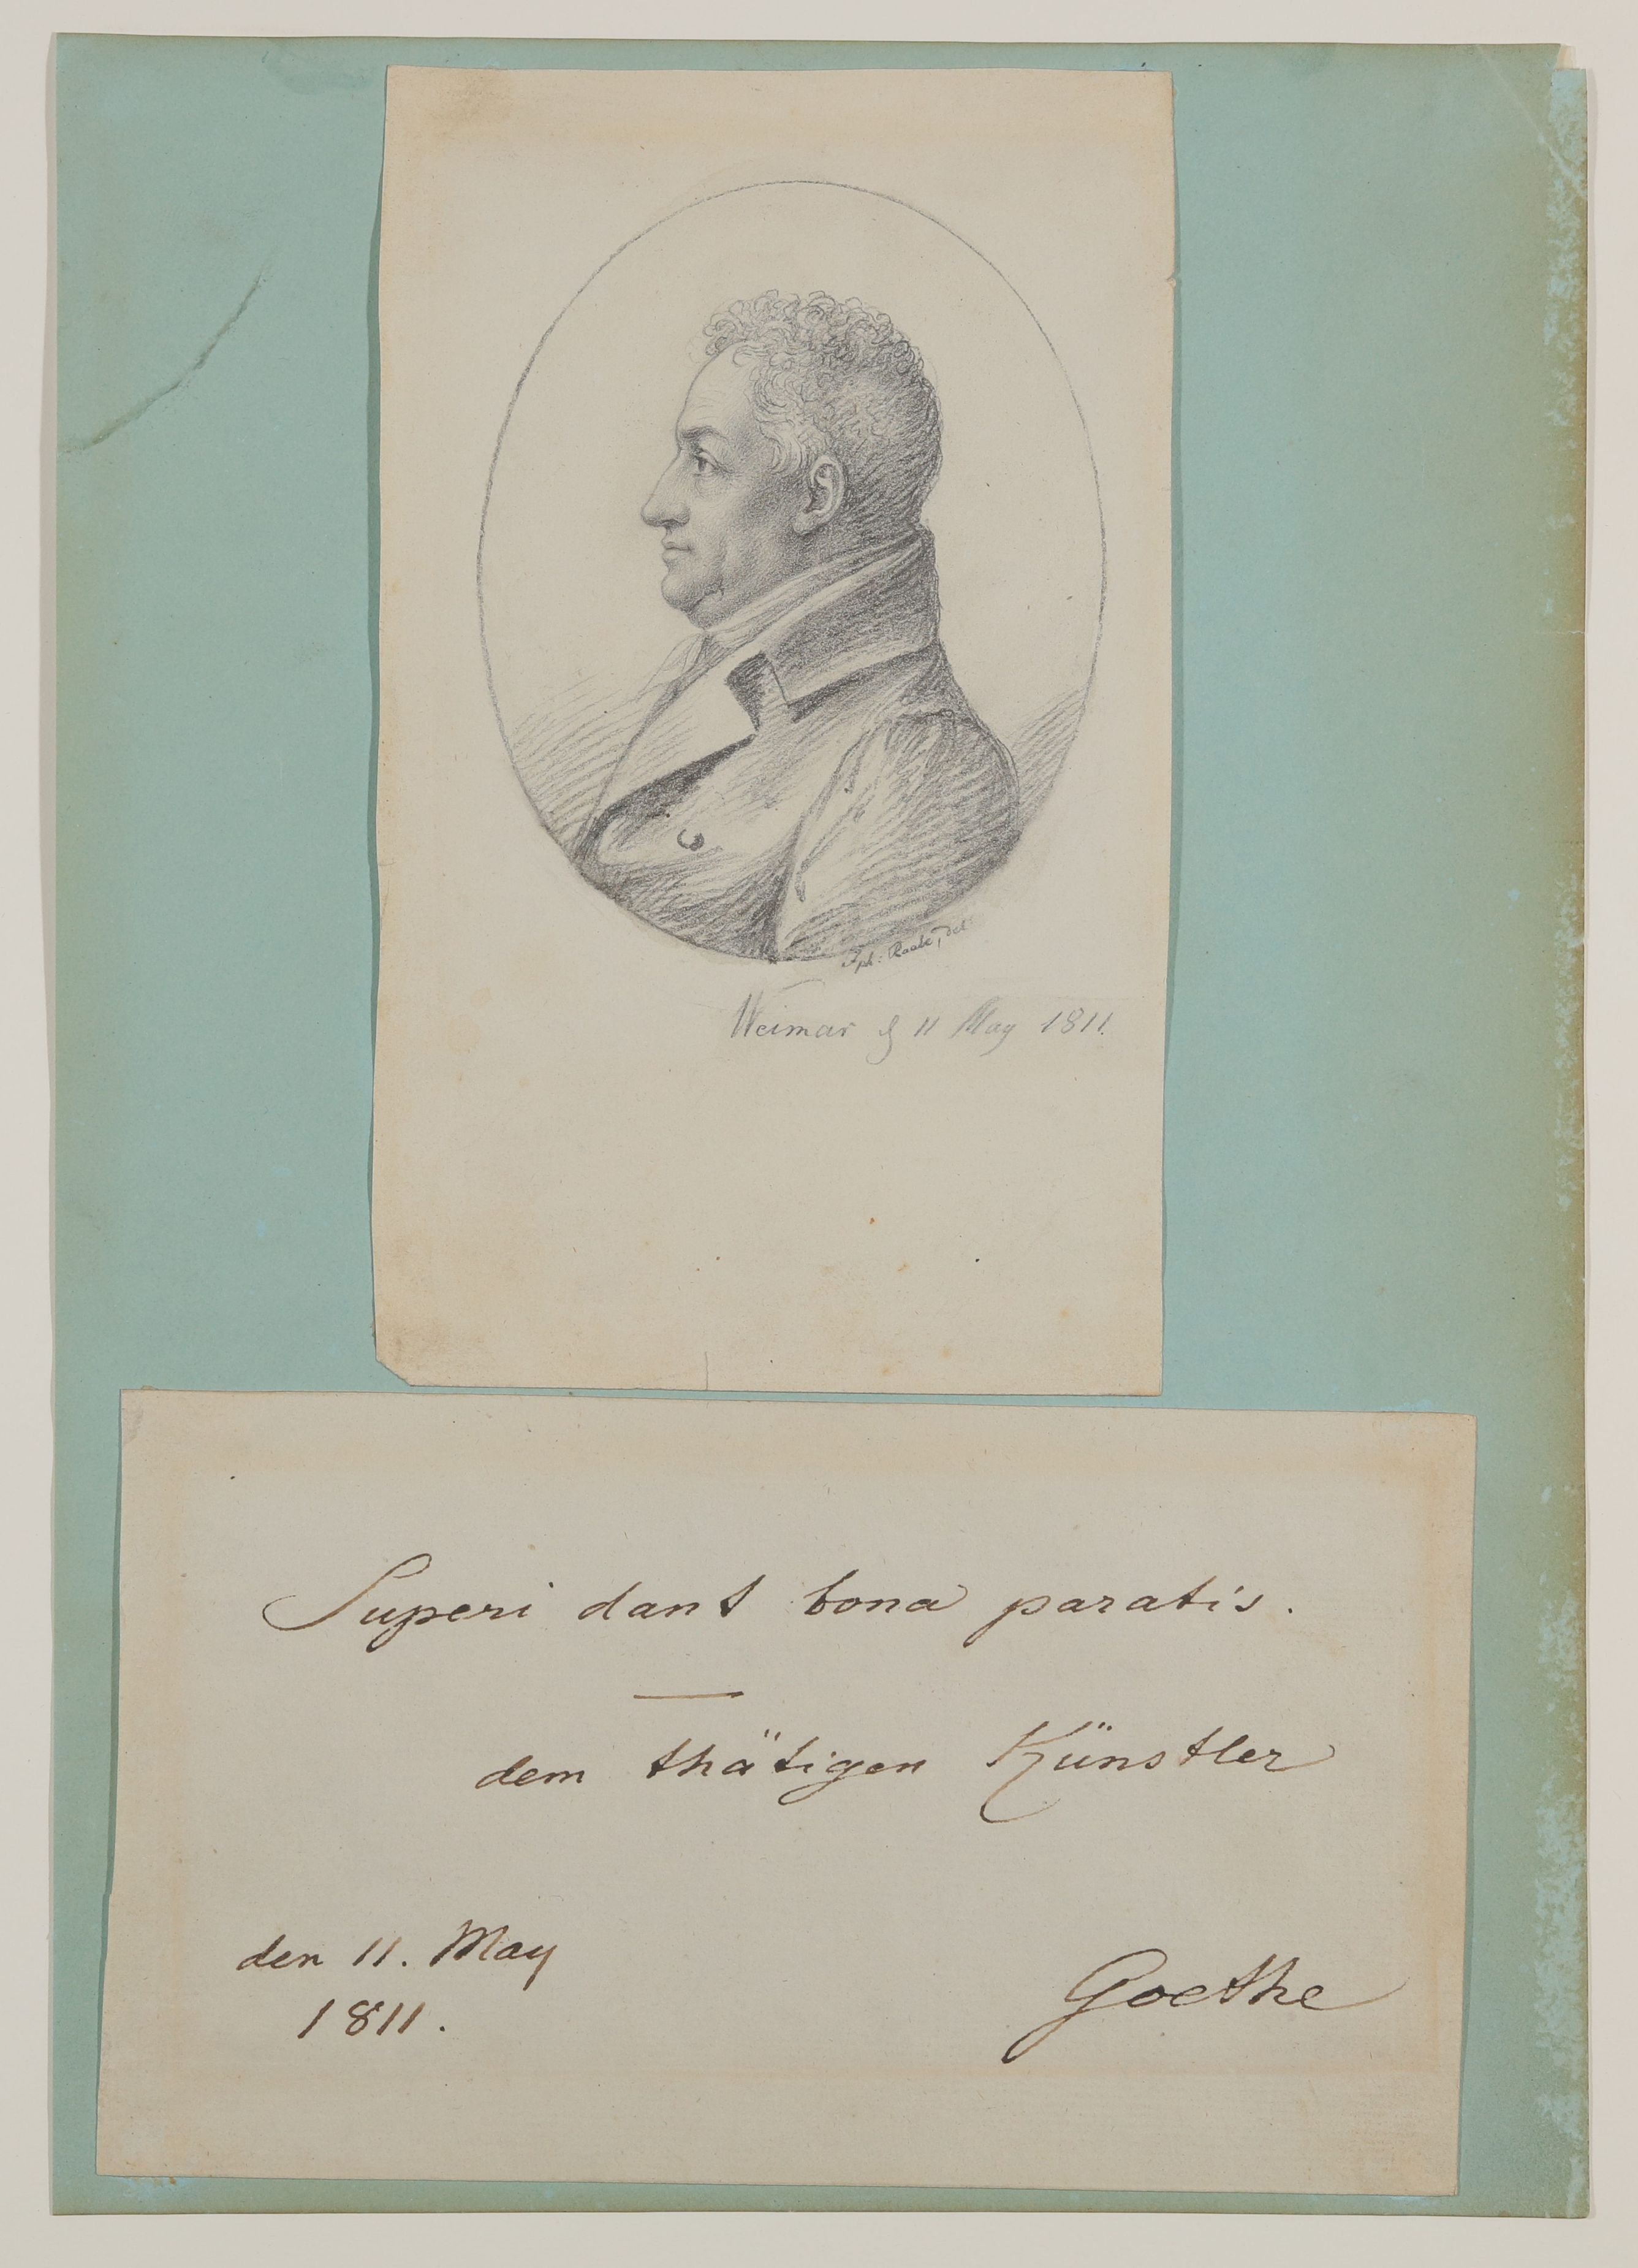 Jph: Raabe, del
Weimar d 11 May 1811.
Superi dant bona paratis.
dem thätigen Künstler
den 11. May
1811.
Goethe